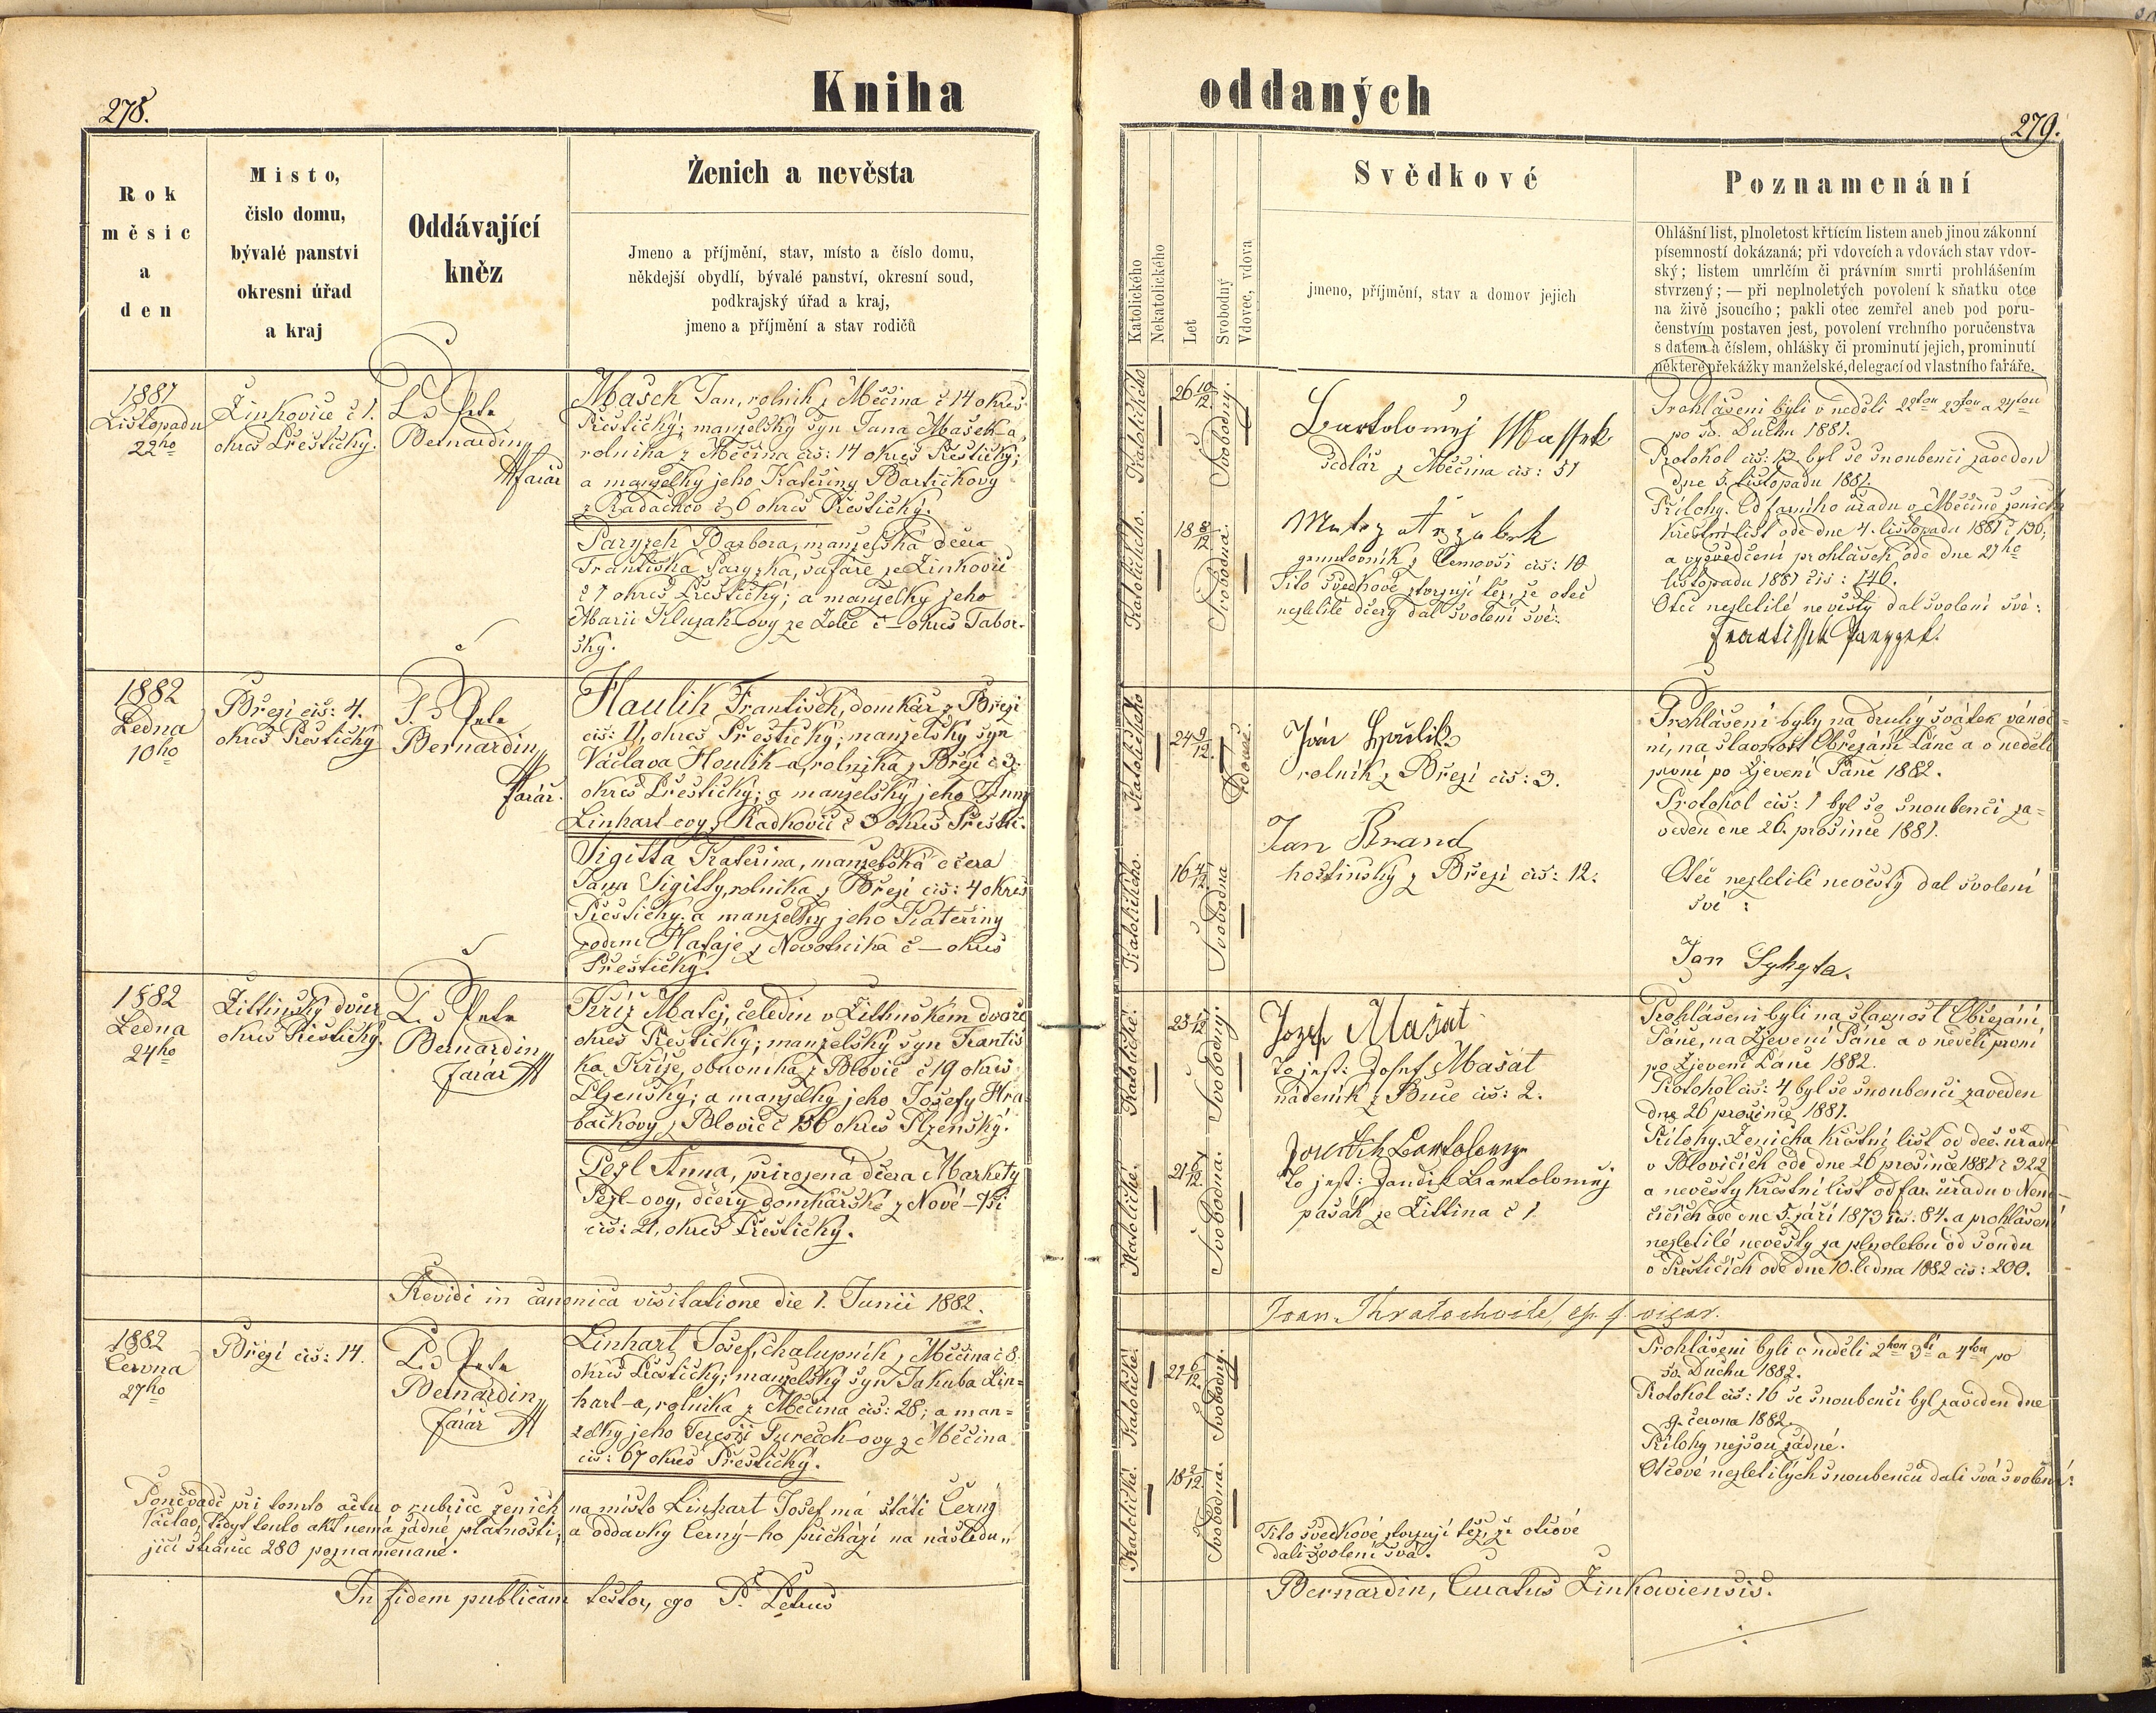 278.
Kniha
Rok
měsíc
a
den
Místo,
číslo domu,
bývalé panství
okresní úřad
a kraj
Oddávající
kněz
Ženich a nevěsta
Jmeno a příjmění, stav, místo a číslo domu,
někdejší obydlí, bývalé panství, okresní soud,
podkrajský úřad a kraj,
jmeno a příjmění a stav rodičů
1881
Listopadu
22ho
Žinkovice č 1.
okres Přeštický.
Bernardin
farář
Mašek Jan, rolník z Měčína č 14 okres
Přeštický; manželský syn Jana Mašek-a,
rolníka z Měčína čís: 14 okres Přeštický;
a manželky jeho Kateřiny Bartičkovy
z Radačkov č 6 okres Přeštický.
Paryzek Barbora, manželská dcera
Františka Paryzka, šafáře ze Žinkovic
č 1 okres Přeštický; a manželky jeho
Marii Kluzak-ovy ze Želče č — okres Tabor-
ský.
1882
Ledna
10ho
Březí čís: 4.
okres Přeštický
Bernardin
farář.
Haulik František, domkář z Březí
čís: 11, okres Přeštický; manželský syn
Václava Houlik-a, rolníka z Březí č 3.
okres Přeštický; a manželky jeho Anny
Linhart-ovy z Radkovic č 3 okres Přešti.
Sigitta Kateřina, manželská dcera
Jana Sigitty, rolníka z Březí čís: 4 okres
Přeštický. a manželky jeho Kateřiny
rodem Hataje z Novotníka č — okres
Přeštický.
1882
Ledna
24ho
Žittinský dvůr
okres Přeštický.
Bernardin
farář
Kříž Matěj, čeledín v Žittinském dvoře
okres Přeštický; manželský syn Františ
ka Kříže, obuvníka z Blovic č 19 okres
Plzenský; a manželky jeho Josefy Hra
bačkovy z Blovic č 156 okres Plzenský.
Pezl Anna, přirozená dcera Markety
Pezl-ovy, dcery domkářské z Nové-Vsi
čís: 21, okres Přeštický.
Revidi in canonica visitatione die 1. Junii 1882.
1882
Června
27ho
Březí čís: 14.
Bernardin
farář
Linhart Josef, chalupník z Měčína č 8.
okres Přeštický; manželský syn Jakuba Lin=
hart-a, rolníka z Měčína čís: 28; a man=
želky jeho Terezii Tureček-ovy z Měčína
čís: 67 okres Přeštický.
Poněvadž při tomto aktu v rubrice ženich na místo Linhart Josef má státi Černý
Václav, tedy tento akt nemá žádné platnosti; a oddavky Černý-ho přichází na následu„
jící stránce 280 poznamenané.
In fidem publicam testor, ego P. Petrus
oddaných
279.
Katolického
Nekatolického
Let
Svobodný
Vdovec, vdova
Svědkové
jmeno, příjmění, stav a domov jejich
Poznamenání
Ohlášní list, plnoletost křtícím listem aneb jinou zákonní
písemností dokázaná; při vdovcích a vdovách stav vdov-
ský; listem umrlčím či právním smrti prohlášením
stvrzený; — při neplnoletých povolení k sňatku otce
na živě jsoucího; pakli otec zemřel aneb pod poru-
čenstvím postaven jest, povolení vrchního poručenstva
s datem a číslem, ohlášky či prominutí jejich, prominutí
některé překážky manželské, delegací od vlastního faráře.
Katolického
26 10/12.
Svobodný.
Katolického.
18 8/12
Svobodná.
Bartolomej Massek
sedlář z Měčína čís: 51
grundovník z čís: 10
Tito svědkové ztvrzují též, že otec
nezletilé dcery dal svolení své:
Prohlášeni byli v neděli 22tou 23tou a 24tou
po sv. Duchu 1881.
Protokol čís: 12 byl se snoubenci zaveden
dne 5. listopadu 1881.
Přílohy. Od farního úřadu v Měčíně ženicha
křestní list ode dne 4. listopadu 1881 č 130,
a vysvědčení prohlášek ode dne 21ho
listopadu 1881 čís: 146.
Otec nezletilé nevěsty dal svolení své:
Frantissek Paryzek.
Katolického
24 9/12.
vdovec.
Katolického.
16 4/12
Svobodná
Jan Houlik
rolník z Březí čís: 3.
Jan Brand
hostinský z Březí čís: 12.
Prohlášeni byly na druhý svátek vánoč=
ní, na slavnost Obřezání Páně a v neděli
první po Zjevení Páně 1882.
Protokol čís: 1 byl se snoubenci za=
veden dne 26. prosince 1881.
Otec nezletilé nevěsty dal svolení
své:
Jan Syhyta.
Katolické.
23 1/12
Svobodný.
Katolické.
21 6/12
Svobodná.
Jozef Mašat
to jest: Josef Mašát
nádeník z Buče čís: 2.
to jest: Jandik Bartolomej
pasák ze Žittina č 1
Prohlášeni byli na slavnost Obřezání
Páně, na Zjevení Páně a v neděli první
po Zjevení Páně 1882.
Protokol čís: 4 byl se snoubenci zaveden
dne 26 prosince 1881.
Přílohy. Ženicha křestní list od děk. úřadu
v Blovicích ode dne 26 prosince 1881 č 322
a nevěsty křestní list od far. úřadu v Nem-
čicích ode dne 5. září 1873 čís: 84. a prohlášení
nezletilé nevěsty za plnoletou od soudu
v Přešticích ode dne 10. ledna 1882 čís: 200.
Joan. Kratochvile, ep. f. vicar.
Katolické.
21 6/12
Svobodný.
Katolické.
18 2/12
Svobodná.
Tito svědkové ztvrzují též, že otcové
dali svolení svá.
Prohlášeni byli v neděli 2hou 3tí a 4tou po
sv. Duchu 1882.
Protokol čís: 16 se snoubenci byl zaveden dne
9. června 1882.
Přílohy nejsou žádné.
Otcové nezletilých snoubenců dali svá svolení:
Bernardin, Curatus Žinkowiensis.